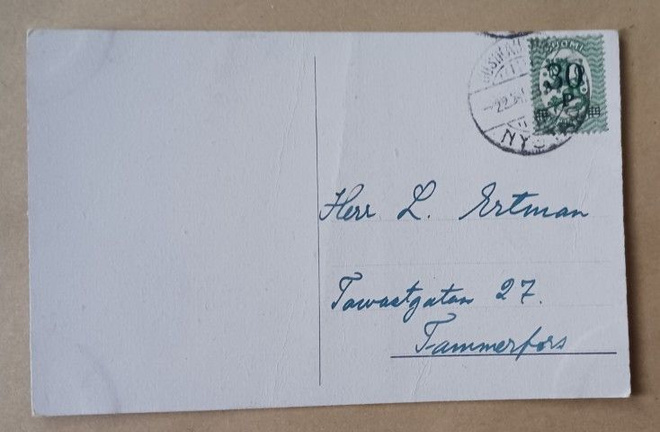 SUOMI
30
P
22.
NYS
Herr L. Ertman
Tawastgatan 27.
Tammerfors